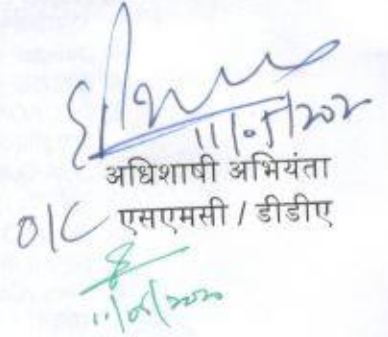 11/05/2020
अधिशाषी अभियंता
O/C एसएमसी / डीडीए
11/05/2020